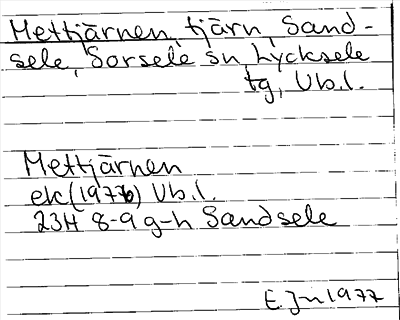 Mettjärnen, tjärn, Sand-
sele, Sorsele sn, Lycksele
tg, Vb.l.
Mettjärnen
ek (1976) Vb.l.
23H 8-9 g-h Sandsele
E. Jn 1977